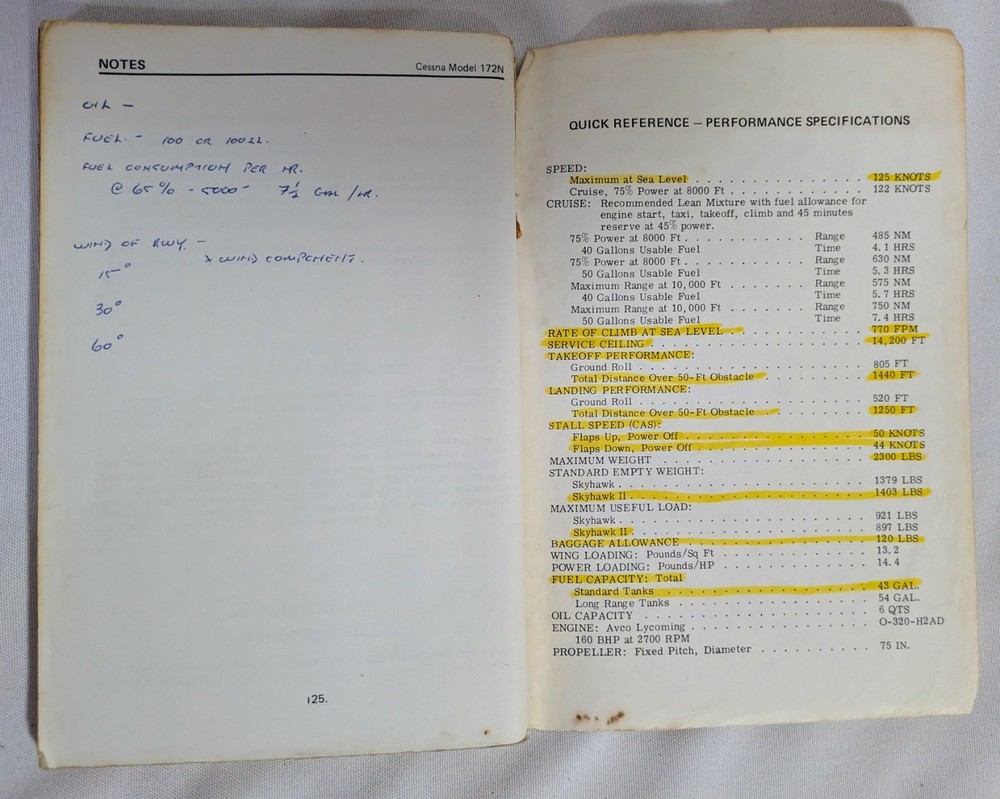 NOTES
Cessna Model 172N
OIL -
FUEL. - 100 OR 100LL.
FUEL CONSUMPTION PER HR.
@ 65% - 5000' 7½ GAL/HR.
WIND OF RWY. -
X WIND COMPONENT.
15°
30°
60°
125.
QUICK REFERENCE – PERFORMANCE SPECIFICATIONS
SPEED:
Maximum at Sea Level . . . . . . . . . . . . . . . . . 125 KNOTS
Cruise, 75% Power at 8000 Ft . . . . . . . . . . . . 122 KNOTS
CRUISE: Recommended Lean Mixture with fuel allowance for
engine start, taxi, takeoff, climb and 45 minutes
reserve at 45% power.
75% Power at 8000 Ft . . . . . . . . . . Range 485 NM
40 Gallons Usable Fuel Time 4.1 HRS
75% Power at 8000 Ft . . . . . . . . . . Range 630 NM
50 Gallons Usable Fuel Time 5.3 HRS
Maximum Range at 10,000 Ft . . . . . . . Range 575 NM
40 Gallons Usable Fuel Time 5.7 HRS
Maximum Range at 10,000 Ft . . . . . . . Range 750 NM
50 Gallons Usable Fuel Time 7.4 HRS
RATE OF CLIMB AT SEA LEVEL . . . . . . . . . . . . 770 FPM
SERVICE CEILING . . . . . . . . . . . . . . . . . . 14,200 FT
TAKEOFF PERFORMANCE:
Ground Roll . . . . . . . . . . . . . . . . . . . . 805 FT
Total Distance Over 50-Ft Obstacle . . . . . . . . . 1440 FT
LANDING PERFORMANCE:
Ground Roll . . . . . . . . . . . . . . . . . . . . 520 FT
Total Distance Over 50-Ft Obstacle . . . . . . . . . 1250 FT
STALL SPEED (CAS):
Flaps Up, Power Off . . . . . . . . . . . . . . . . 50 KNOTS
Flaps Down, Power Off . . . . . . . . . . . . . . . 44 KNOTS
MAXIMUM WEIGHT . . . . . . . . . . . . . . . . . . 2300 LBS
STANDARD EMPTY WEIGHT:
Skyhawk . . . . . . . . . . . . . . . . . . . . . . 1379 LBS
Skyhawk II . . . . . . . . . . . . . . . . . . . . . 1403 LBS
MAXIMUM USEFUL LOAD:
Skyhawk . . . . . . . . . . . . . . . . . . . . . . 921 LBS
Skyhawk II . . . . . . . . . . . . . . . . . . . . . 897 LBS
BAGGAGE ALLOWANCE . . . . . . . . . . . . . . . . . 120 LBS
WING LOADING: Pounds/Sq Ft . . . . . . . . . . . . 13.2
POWER LOADING: Pounds/HP . . . . . . . . . . . . . 14.4
FUEL CAPACITY: Total
Standard Tanks . . . . . . . . . . . . . . . . . . . 43 GAL.
Long Range Tanks . . . . . . . . . . . . . . . . . . 54 GAL.
OIL CAPACITY . . . . . . . . . . . . . . . . . . . 6 QTS
ENGINE: Avco Lycoming . . . . . . . . . . . . . . . O-320-H2AD
160 BHP at 2700 RPM
PROPELLER: Fixed Pitch, Diameter . . . . . . . . . . 75 IN.